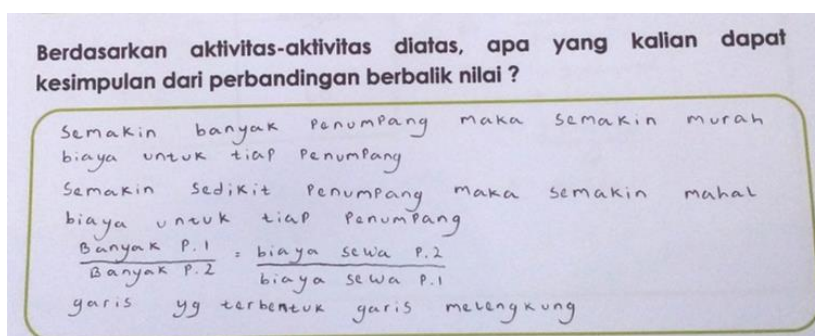 Berdasarkan aktivitas-aktivitas diatas, apa yang kalian dapat
kesimpulan dari perbandingan berbalik nilai ?
Semakin banyak Penumpang maka semakin murah
biaya untuk tiap Penumpang
Semakin Sedikit Penumpang maka semakin mahal
biaya untuk tiap Penumpang
Banyak P.1 = biaya sewa P.2
Banyak P.2 biaya sewa P.1
garis yg terbentuk garis melengkung